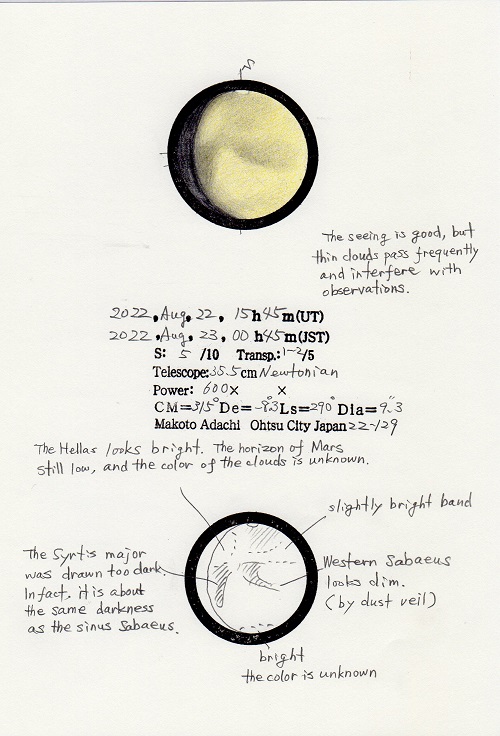 S
The seeing is good, but
thin clouds pass frequently
and interfere with
observations.
2022, Aug, 22, 15h45m(UT)
2022, Aug, 23, 00h45m(JST)
S: 5 /10 Transp.:1-2/5
Telescope:35.5cm Newtonian
Power: 600× ×
CM=315° De=-8.3 Ls=290° Dia=9."3
Makoto Adachi Ohtsu City Japan 22-129
The Hellas looks bright. The horizon of Mars
still low, and the color of the clouds is unknown.
slightly bright band
The Syrtis major
was drawn too dark.
In fact, it is about
the same darkness
as the sinus Sabaeus.
Western Sabaeus
looks dim.
(by dust veil)
bright
the color is unknown